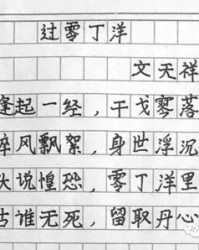 过零丁洋
文天祥
逢起一经，干戈零落
碎风飘絮，身世浮沉
头说惶恐，零丁洋里
古谁无死，留取丹心